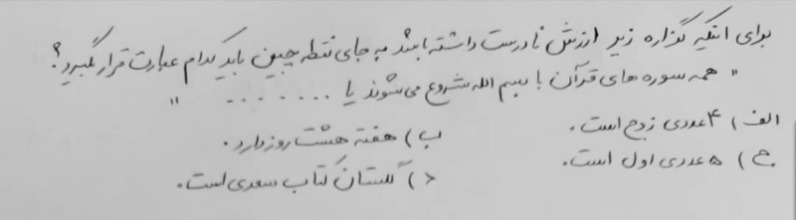 برای اینکه گزاره زیر ارزش نادرست داشته باشد به جای نقطه چین باید کدام عبارت قرار گیرد؟
" همه سوره های قرآن با بسم الله شروع می شوند یا ........ "
الف) ۴ عددی زوج است. ب) هفته هشت روز دارد.
ج) ۵ عددی اول است. د) گلستان کتاب سعدی است.